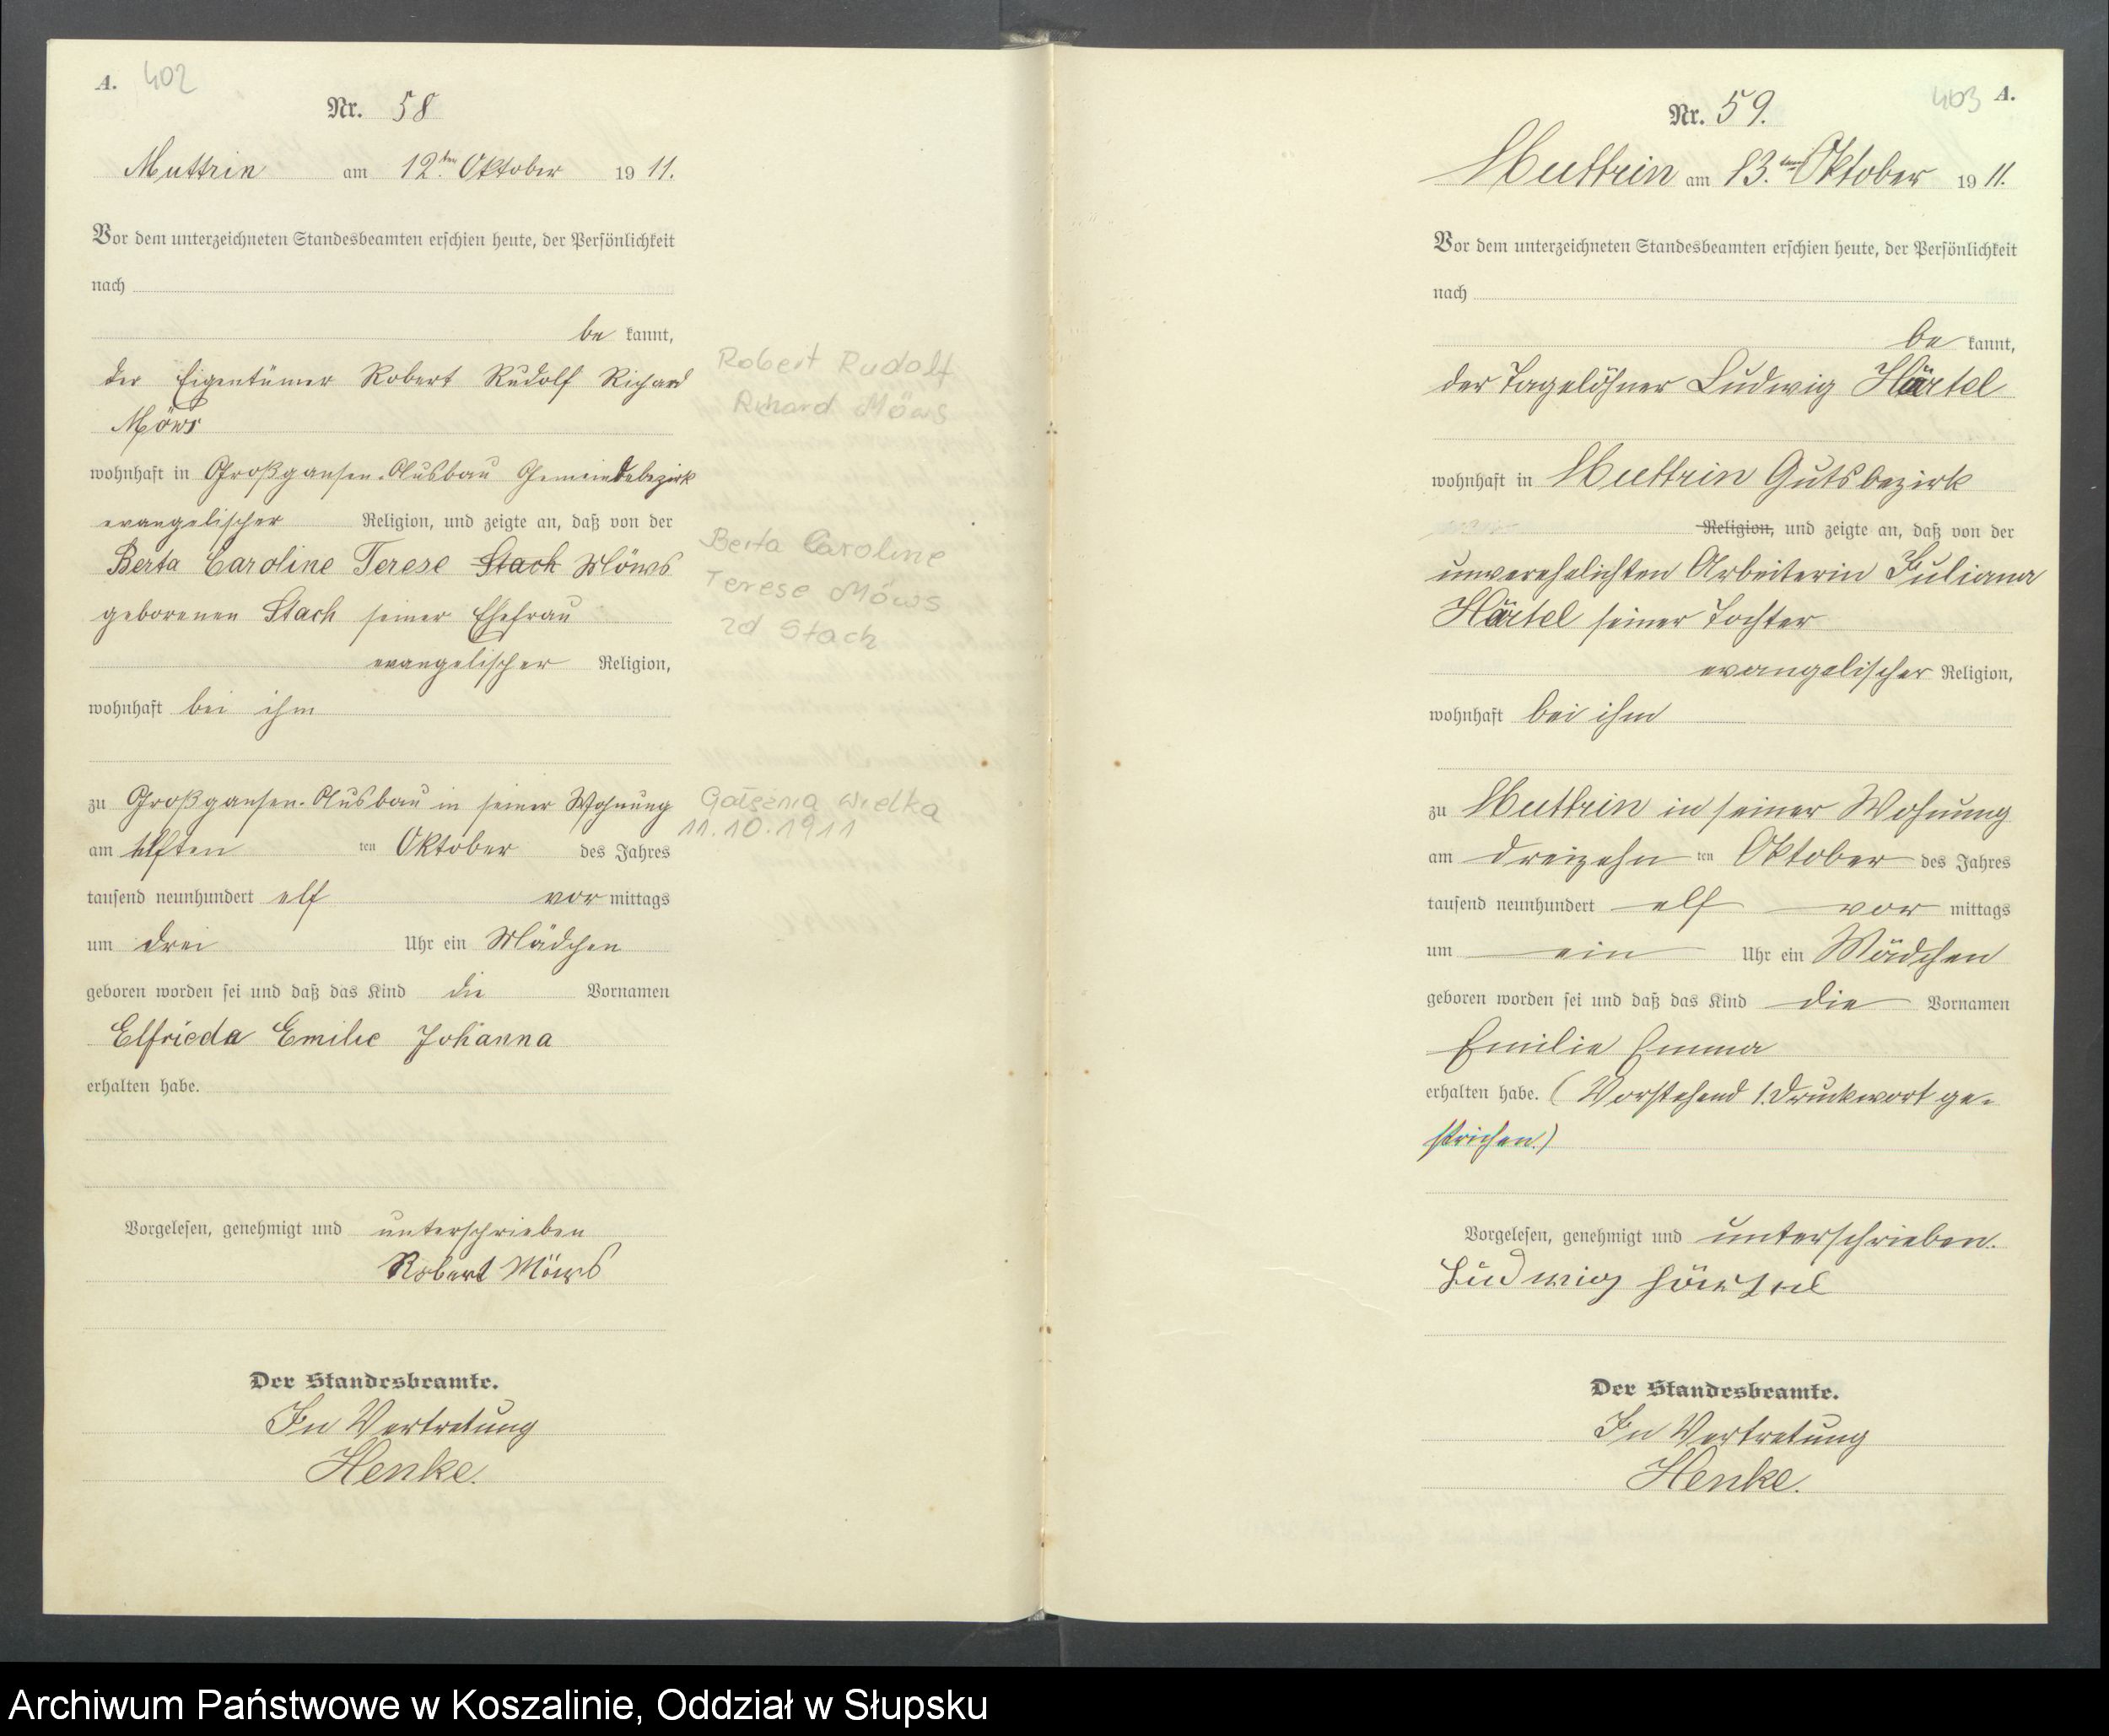 A. 402
Nr. 58
Muttrin am 12.ten Oktober 1911.
Vor dem unterzeichneten Standesbeamten erschien heute, der Persönlichkeit
nach
be kannt,
der Eigentümer Robert Rudolf Richard
Möws
wohnhaft in Großgansen-Ausbau Gemeindebezirk
evangelischer Religion, und zeigte an, daß von der
Berta Caroline Terese Stach Möws
geborenen Stach seiner Ehefrau
evangelischer Religion,
wohnhaft bei ihm
zu Großgansen-Ausbau in seiner Wohnung
am elften ten Oktober des Jahres
tausend neunhundert elf vor mittags
um drei Uhr ein Mädchen
geboren worden sei und daß das Kind die Vornamen
Elfrieda Emilie Johanna
erhalten habe.
Vorgelesen, genehmigt und unterschrieben
Robert Möws
Der Standesbeamte.
In Vertretung
Henke.
Robert Rudolf
Richard Möws
Berta Caroline
Terese Möws
zd Stach
Gałęźnia Wielka
11.10.1911
403 A.
Nr. 59.
Muttrin am 13.ten Oktober 1911.
Vor dem unterzeichneten Standesbeamten erschien heute, der Persönlichkeit
nach
be kannt,
der Tagelöhner Ludwig Härtel
wohnhaft in Muttrin Gutsbezirk
Religion, und zeigte an, daß von der
unverehelichten Arbeiterin Juliana
Härtel seiner Tochter
evangelischer Religion,
wohnhaft bei ihm
zu Muttrin in seiner Wohnung
am dreizehn ten Oktober des Jahres
tausend neunhundert elf vor mittags
um ein Uhr ein Mädchen
geboren worden sei und daß das Kind die Vornamen
Emilie Emma
erhalten habe. (Vorstehend 1 Druckwort ge-
strichen.)
Vorgelesen, genehmigt und unterschrieben.
Ludwig Härtel
Der Standesbeamte.
In Vertretung
Henke.
Archiwum Państwowe w Koszalinie, Oddział w Słupsku